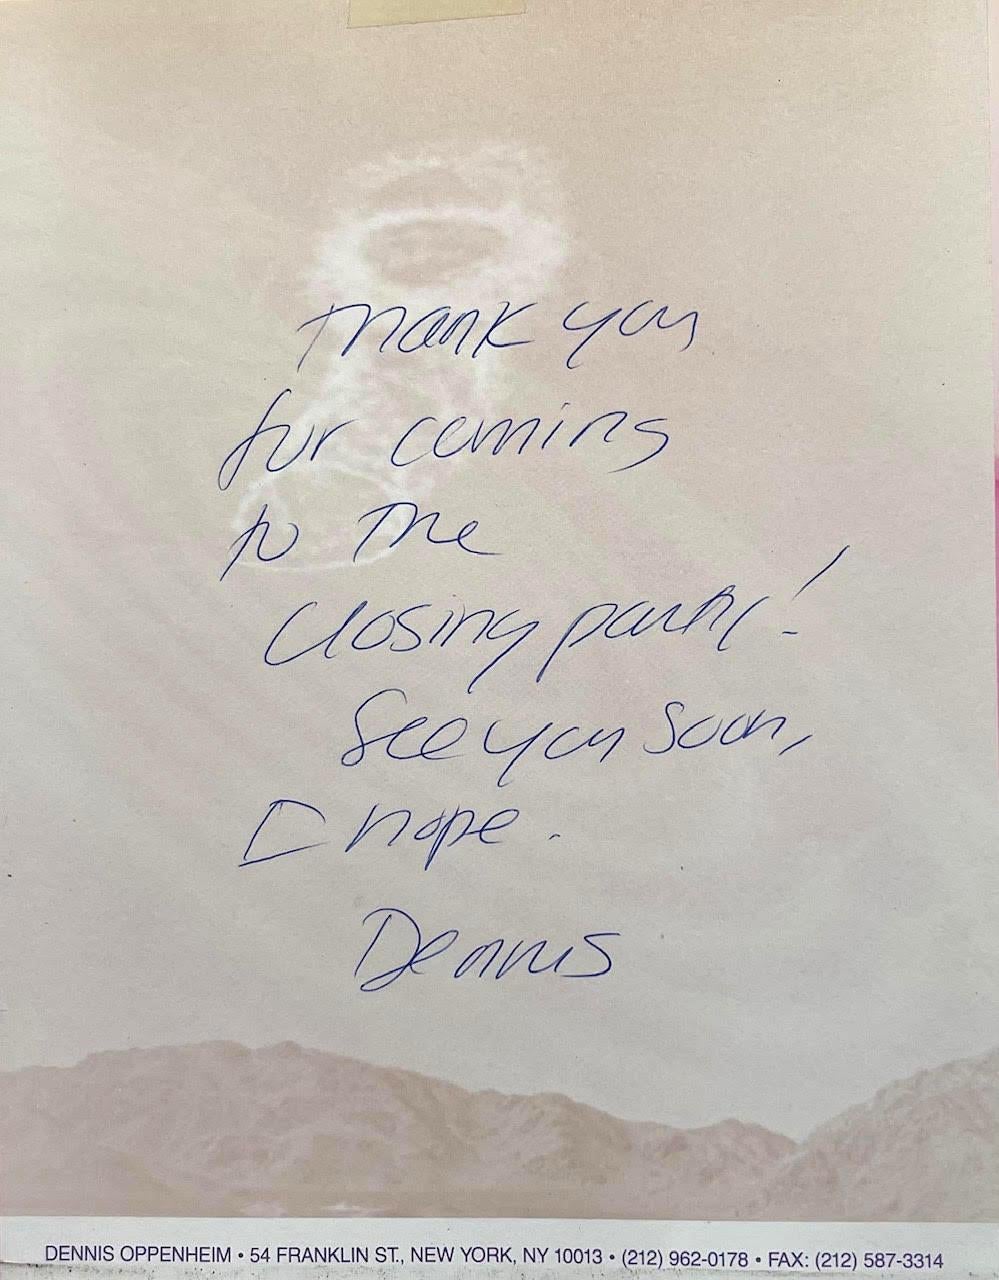 Thank you
for coming
to the
closing party!
See you soon,
I hope.
Dennis
DENNIS OPPENHEIM • 54 FRANKLIN ST., NEW YORK, NY 10013 • (212) 962-0178 • FAX: (212) 587-3314